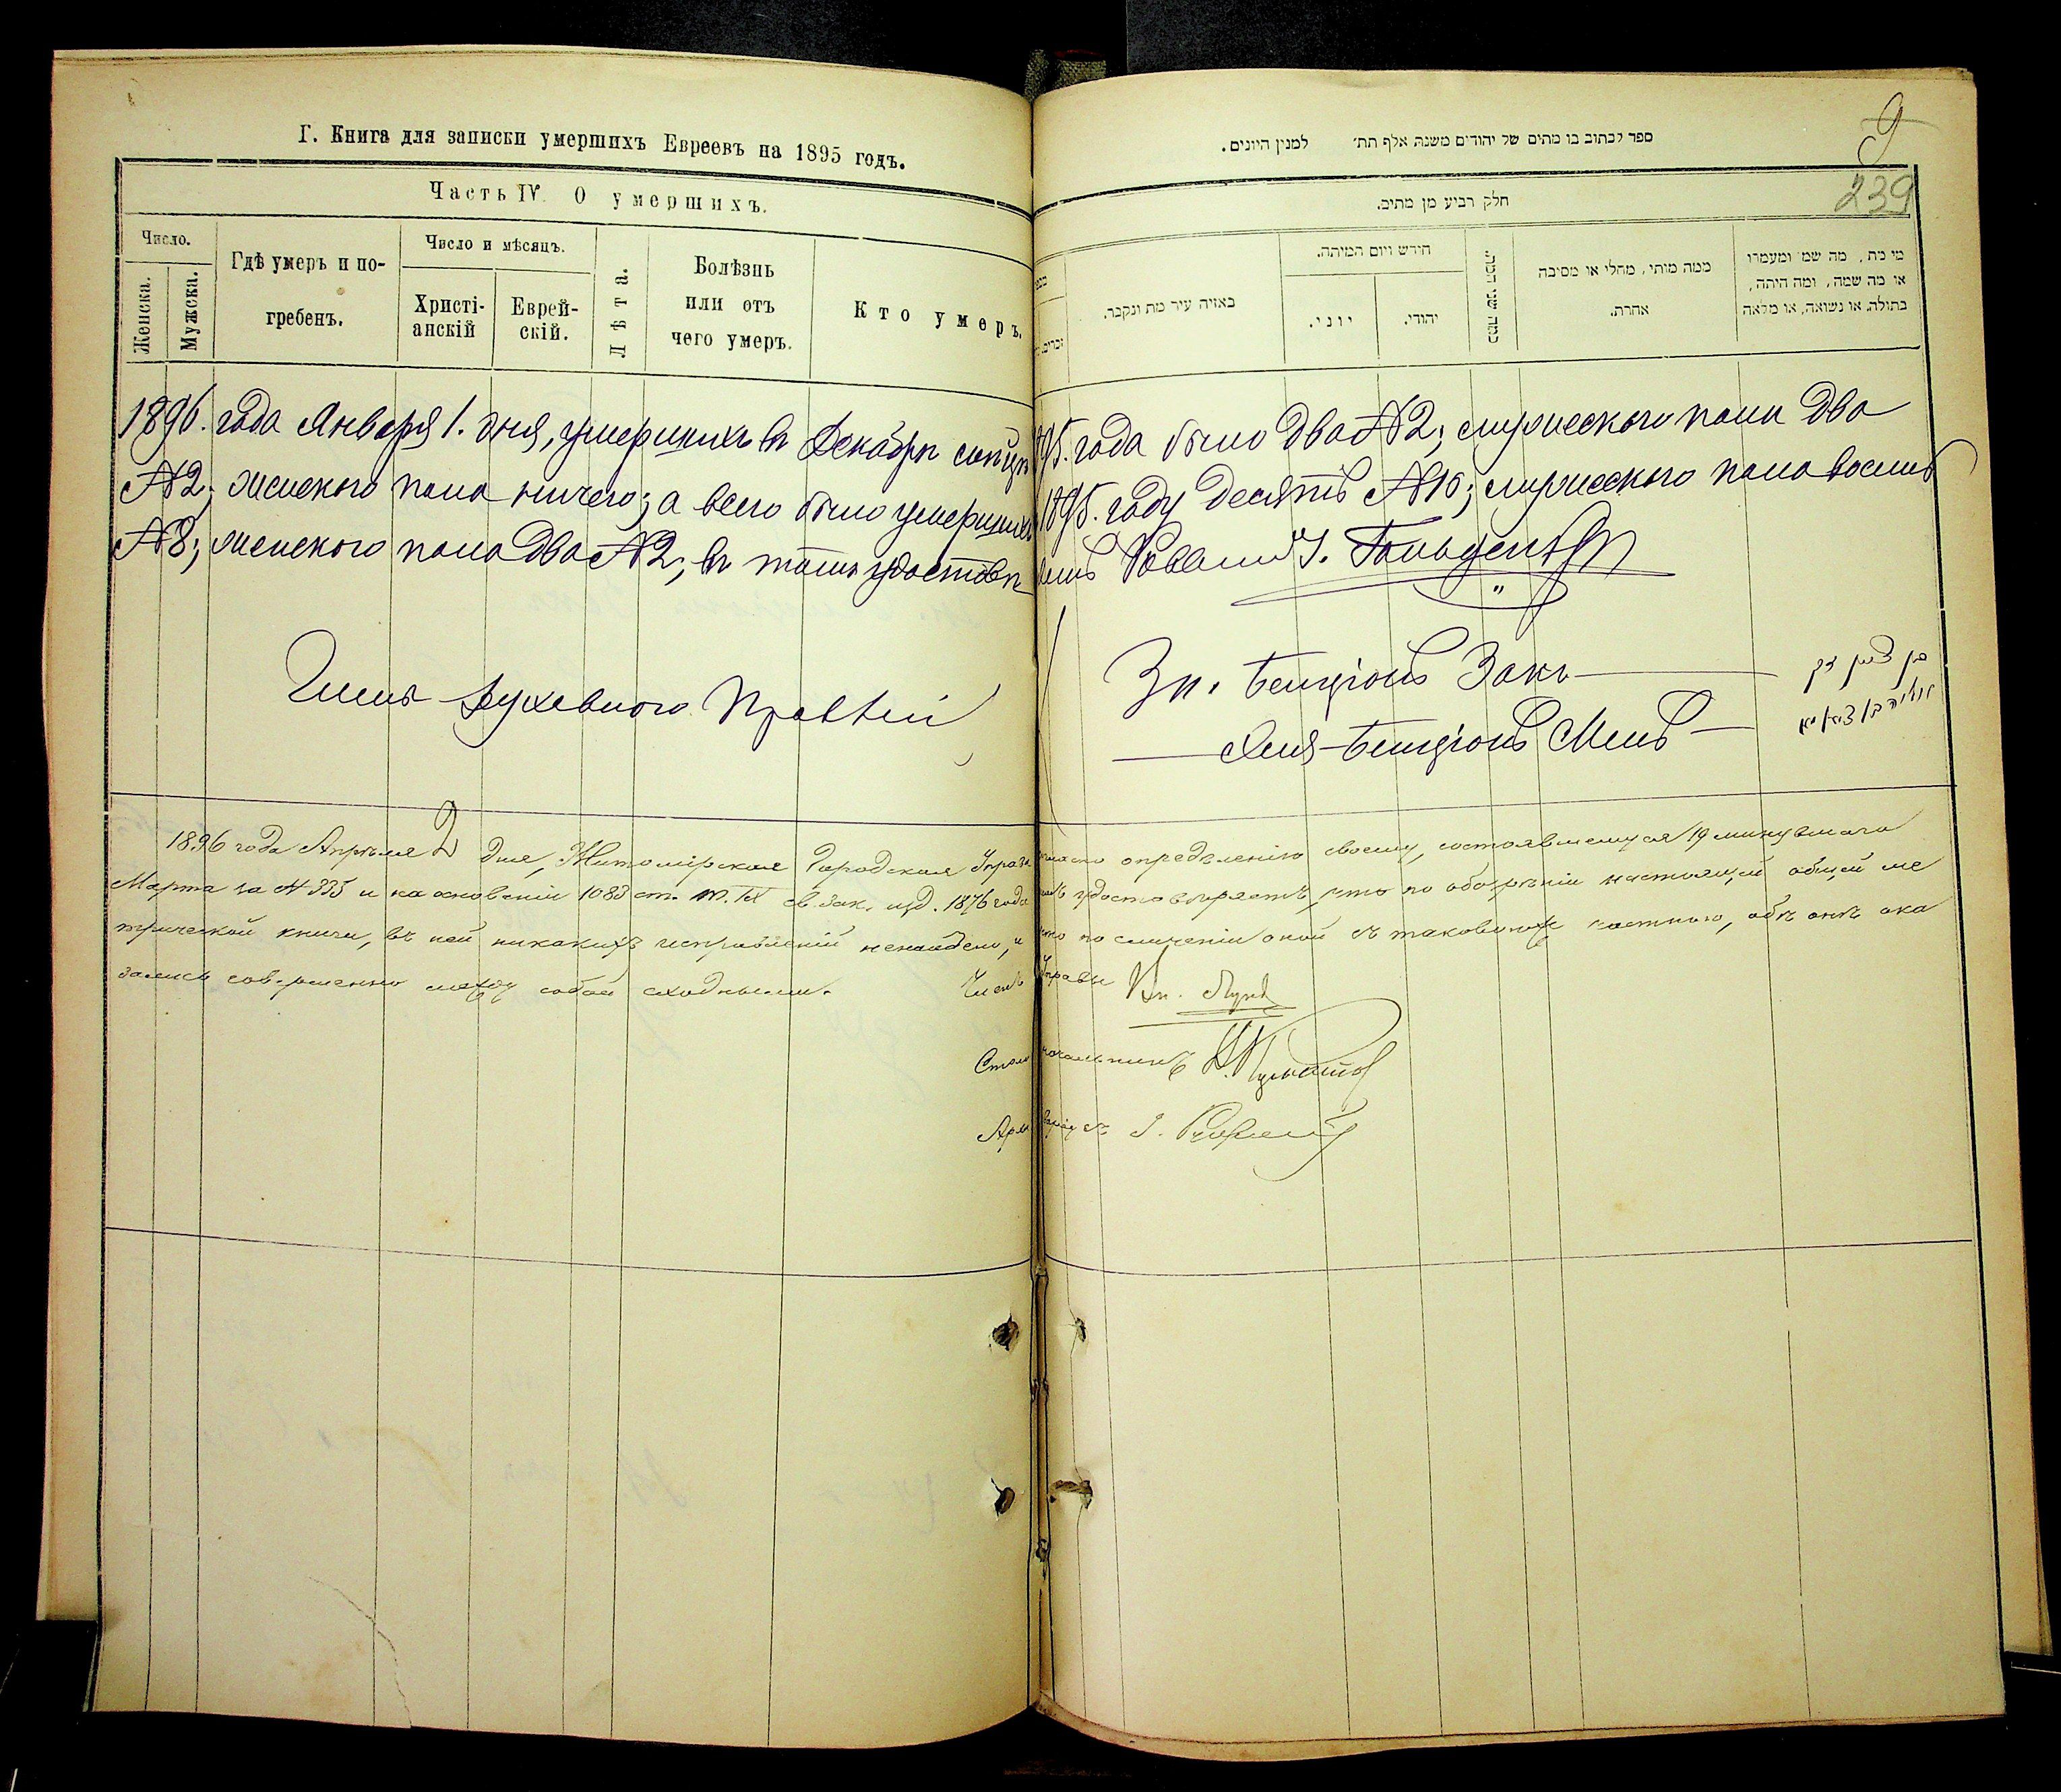 Г. Книга для записки умершихъ Евреевъ на 1895 годъ.
Часть IV. О умершихъ.
Число.
Женска.
Мужска.
Гдѣ умеръ и по-
гребенъ.
Число и мѣсяцъ.
Христі-
анскій
Еврей-
скій.
Лѣта.
Болѣзнь
или отъ
чего умеръ.
Кто умеръ.
9
ספר לכתוב בו מתים של יהודים משנת אלף תת׳ למנין היונים.
239
חלק רביע מן מתים.
באיזה עיר מת ונקבר.
חידש ויום המיתה.
יוני.
יהודי.
כמה שני המת.
ממה מותי, מחלי או מסיבה
אחרת.
מי מת, מה שמו ומעמדו
או מה שמה, ומה היתה,
בתולה, או נשואה, או מלאה
1896. года Января 1. дня, умершихъ въ Декабрѣ мѣсяцѣ 1895. года было два №2; мужескаго пола два
№2; женскаго пола ничего; а всего было умершихъ 1895. году десять №10; мужескаго пола восемь
№8; женскаго пола два №2, въ томъ удостовѣ
Членъ Духовнаго Правленія
Зп. Бенціонъ Закъ
Бенціонъ
בן ציון זק
1896 года Апрѣля 2 дня, Житомірская Городская Управа согласно опредѣленію своему, состоявшемуся 19 минувшаго
Марта за № 335 и на основаніи 1083 ст. т. IX св. зак. изд. 1876 года удостовѣряетъ, что по обозрѣніи настоящей общей ме
трической книги, въ ней никакихъ исправленій ненайдено, и что по сличеніи оной съ таковою же частною, обѣ онѣ ока
зались совершенно между собой сходными.
Членъ Управы
Столоначальникъ
Архиваріусъ